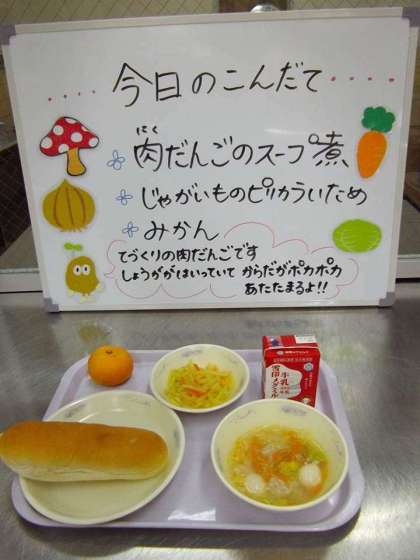 今日のこんだて
にく
肉だんごのスープ煮
じゃがいものピリカラいため
みかん
てづくりの肉だんごです
しょうががはいっていて からだがポカポカ
あたたまるよ!!
牛乳
雪印メグミルク